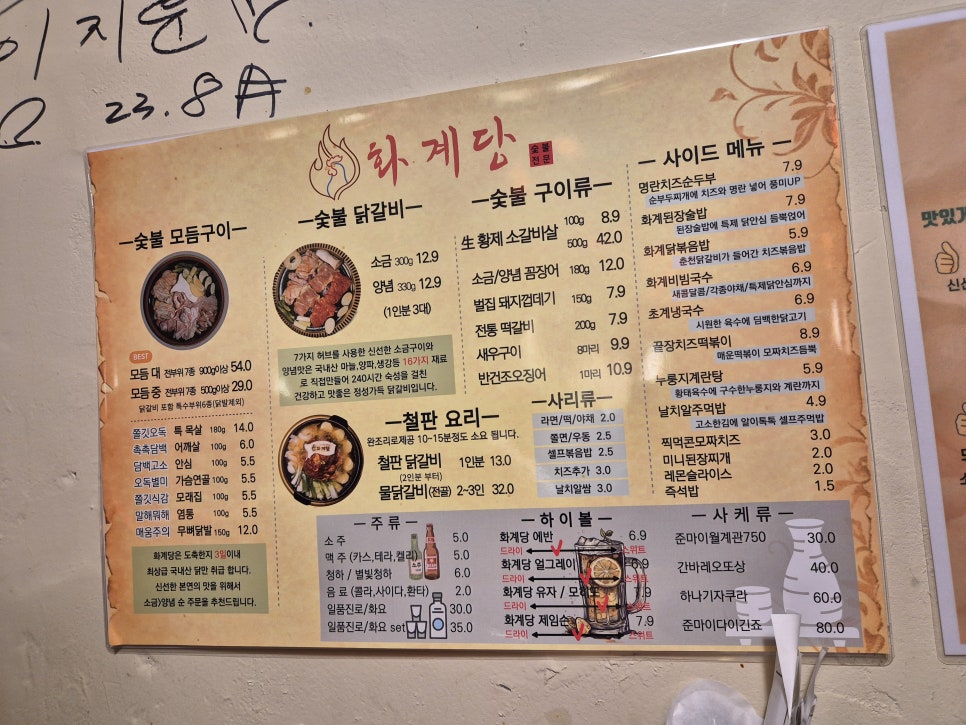 이지훈
23.8
화계당
숯불
전문
숯불 모둠구이
BEST
모듬 대 전부위 7종 900g이상 54.0
모듬 중 전부위 7종 500g이상 29.0
닭갈비 포함 특수부위6종(닭발제외)
쫄깃오독 특 목살 180g 14.0
촉촉담백 어깨살 100g 6.0
담백고소 안심 100g 5.5
오독별미 가슴연골 100g 5.5
쫄깃식감 모래집 100g 5.5
말해뭐해 염통 100g 5.5
매움주의 무뼈닭발 150g 12.0
화계당은 도축한지 3일이내
최상급 국내산 닭만 취급 합니다.
신선한 본연의 맛을 위해서
소금>양념 순 주문을 추천드립니다.
숯불 닭갈비
소금 300g 12.9
양념 330g 12.9
(1인분 3대)
7가지 허브를 사용한 신선한 소금구이와
양념맛은 국내산 마늘,양파,생강등 16가지 재료
로 직접만들어 240시간 숙성을 걸친
건강하고 맛좋은 정성가득 닭갈비입니다.
철판 요리
완조리로제공 10~15분정도 소요 됩니다.
철판 닭갈비 1인분 13.0
(2인분 부터)
물닭갈비(전골) 2~3인 32.0
숯불 구이류
生 황제 소갈비살 100g 8.9
500g 42.0
소금/양념 꼼장어 180g 12.0
벌집 돼지껍데기 150g 7.9
전통 떡갈비 200g 7.9
새우구이 8마리 9.9
반건조오징어 1마리 10.9
사리류
라면/떡/야채 2.0
쫄면/우동 2.5
셀프볶음밥 2.5
치즈추가 3.0
날치알쌈 3.0
사이드 메뉴
명란치즈순두부 7.9
순부두찌개에 치즈와 명란 넣어 풍미UP
화계된장술밥 7.9
된장술밥에 특제 닭안심 듬뿍얹어
화계닭볶음밥 5.9
춘천닭갈비가 들어간 치즈볶음밥
화계비빔국수 6.9
새콤달콤/각종야채/특제닭안심까지
초계냉국수 6.9
시원한 육수에 담백한닭고기
끝장치즈떡볶이 8.9
매운떡볶이 모짜치즈듬뿍
누룽지계란탕 5.9
황태육수에 구수한누룽지와 계란까지
날치알주먹밥 4.9
고소한김에 알이톡톡 셀프주먹밥
찍먹콘모짜치즈 3.0
미니된장찌개 2.0
레몬슬라이스 2.0
즉석밥 1.5
주류
소 주 5.0
맥 주 (카스,테라,켈리) 5.0
청하 / 별빛청하 6.0
음 료 (콜라,사이다,환타) 2.0
일품진로/화요 30.0
일품진로/화요 set 35.0
하이볼
화계당 에반 6.9
드라이 스위트
화계당 얼그레이 6.9
드라이 스위트
화계당 유자 / 모히또 7.9
드라이 스위트
화계당 제임슨 7.9
드라이 스위트
사케류
준마이월계관750 30.0
간바레오또상 40.0
하나기자쿠라 60.0
준마이다이긴죠 80.0
맛있게
신선